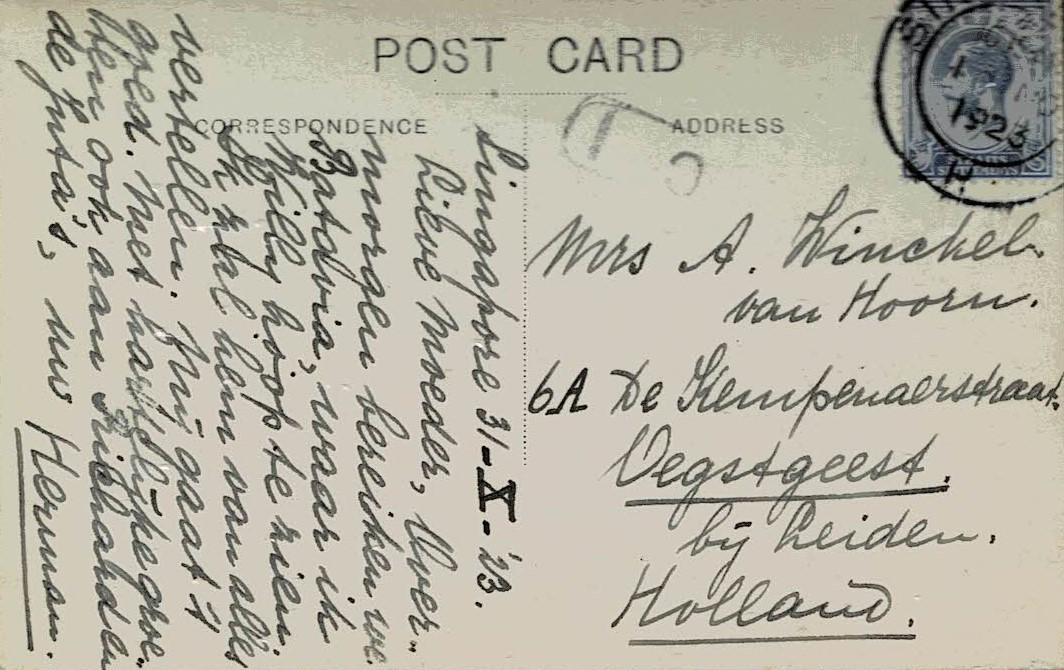 POST CARD
CORRESPONDENCE
ADDRESS
T
1923
Singapore 31-X-'23.
Lieve Moeder, Over-
morgen bereiken we
Batavia, waar ik
Willy hoop te zien.
Ik zal hem van alles
vertellen. Mij gaat 't
goed. Met hartelijke groe-
ten ook aan
de Juta's, uw Herman.
Mrs A. Winckel-
van Hoorn.
6A De Kempenaerstraat.
Oegstgeest.
bij Leiden.
Holland.